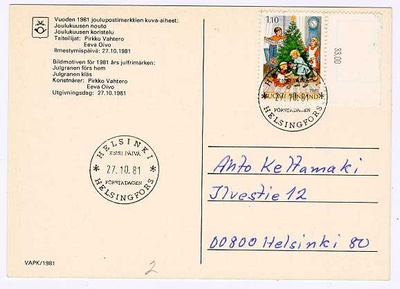 Vuoden 1981 joulupostimerkkien kuva-aiheet:
Joulukuusen nouto
Joulukuusen koristelu
Taiteilijat: Pirkko Vahtero
Eeva Oivo
Ilmestymispäivä: 27.10.1981
Bildmotiven för 1981 års julfrimärken:
Julgranen förs hem
Julgranen kläs
Konstnärer: Pirkko Vahtero
Eeva Oivo
Utgivningsdag: 27.10.1981
1,10
SUOMI FINLAND
33,00
27.10.81
FÖRSTADAGEN
HELSINGFORS
HELSINKI
ENSI PÄIVÄ
27.10.81
FÖRSTADAGEN
HELSINGFORS
Ahto Keltamäki
Ilvestie 12
00800 Helsinki 80
VAPK/1981
2